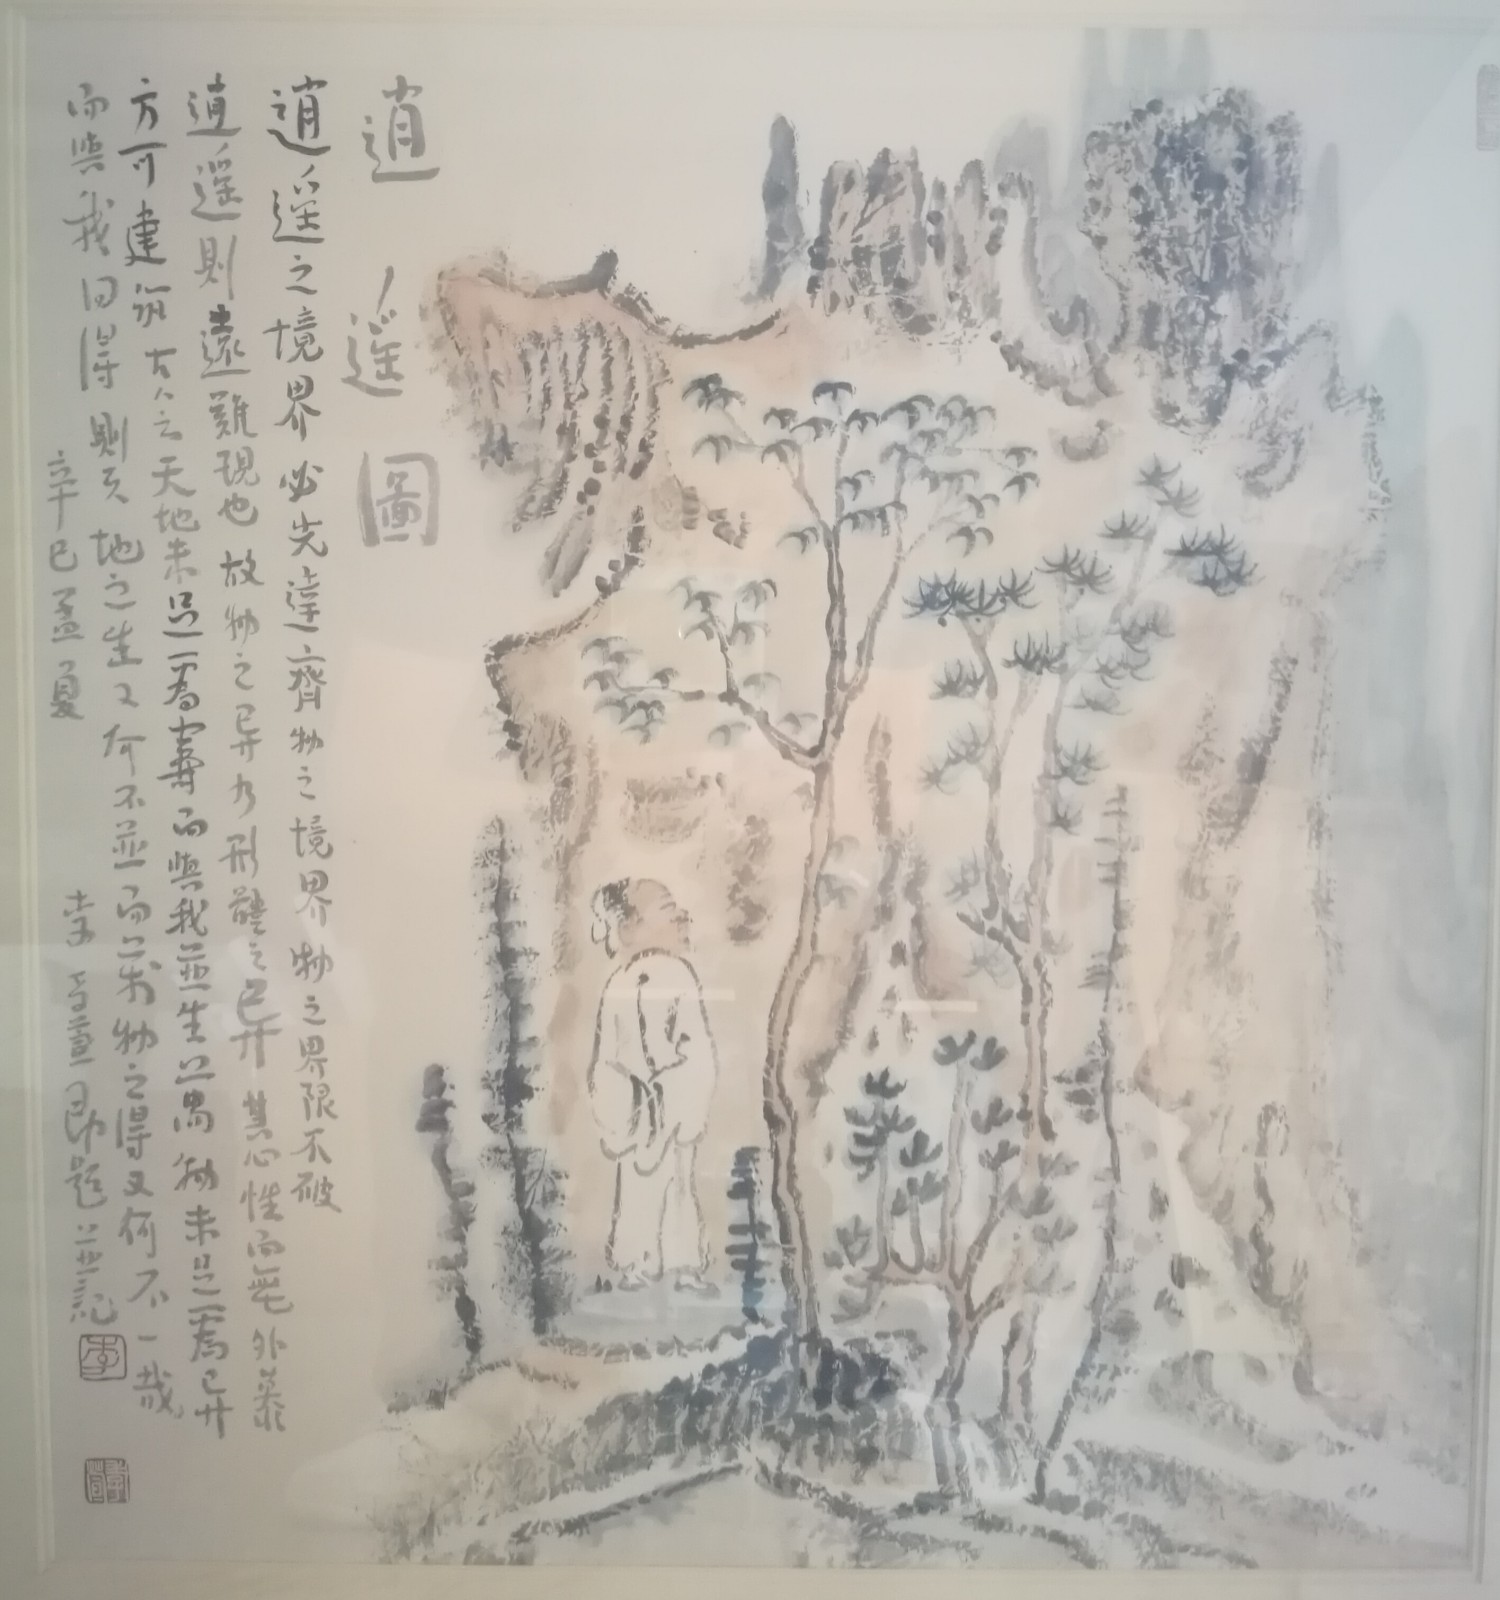 逍遥圖
逍遥之境界必先達齊物之境界物之界限不破
逍遥則遠難現也故物之异乃形體之异慧心性而無外慕
方可建 古人云天地未足為壽而與我並生萬物未足為异
而與我同得則天地之生又何不並而萬物之得又何不一哉
辛巳孟夏 李 題並記
李